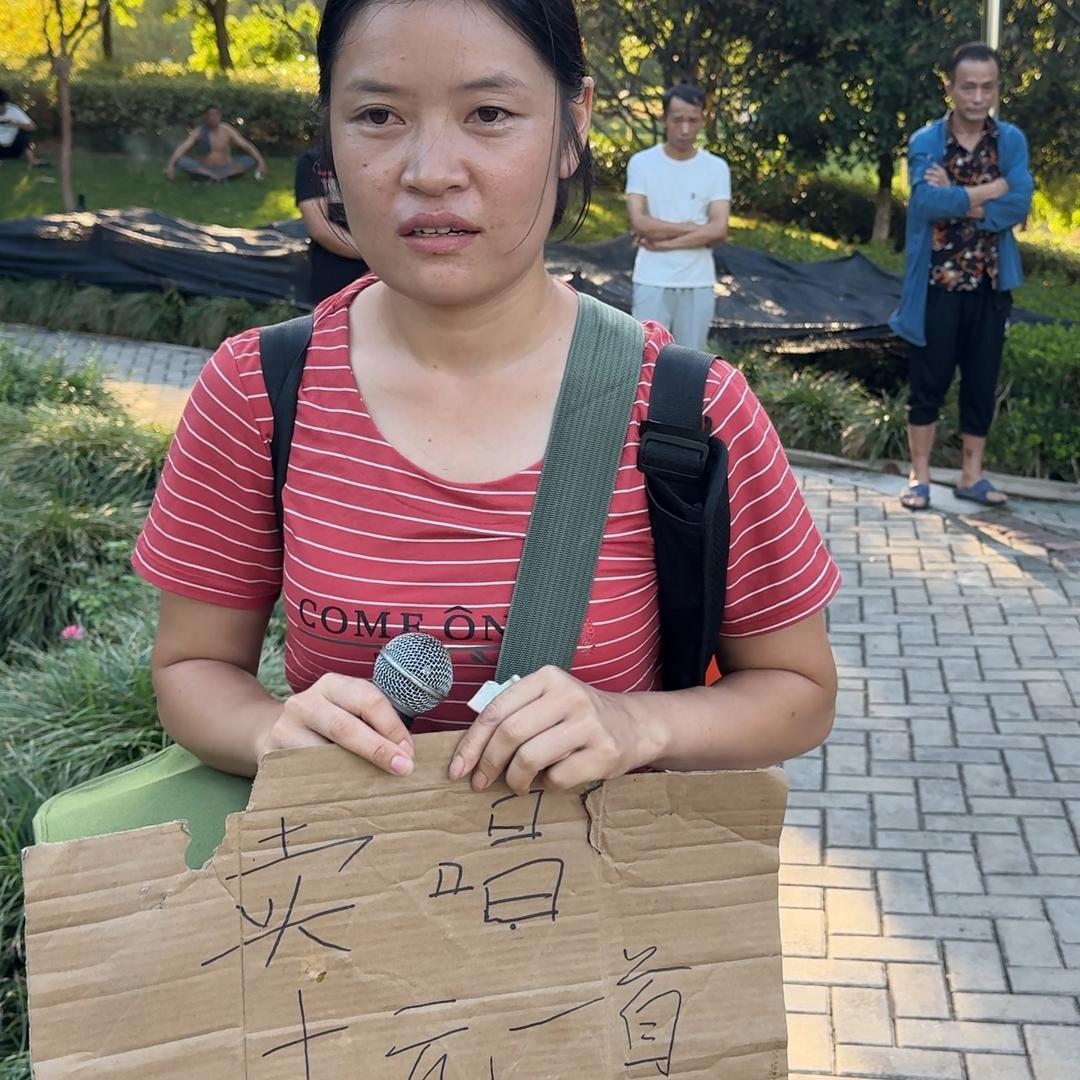 COME ÔN
卖唱
十元一首